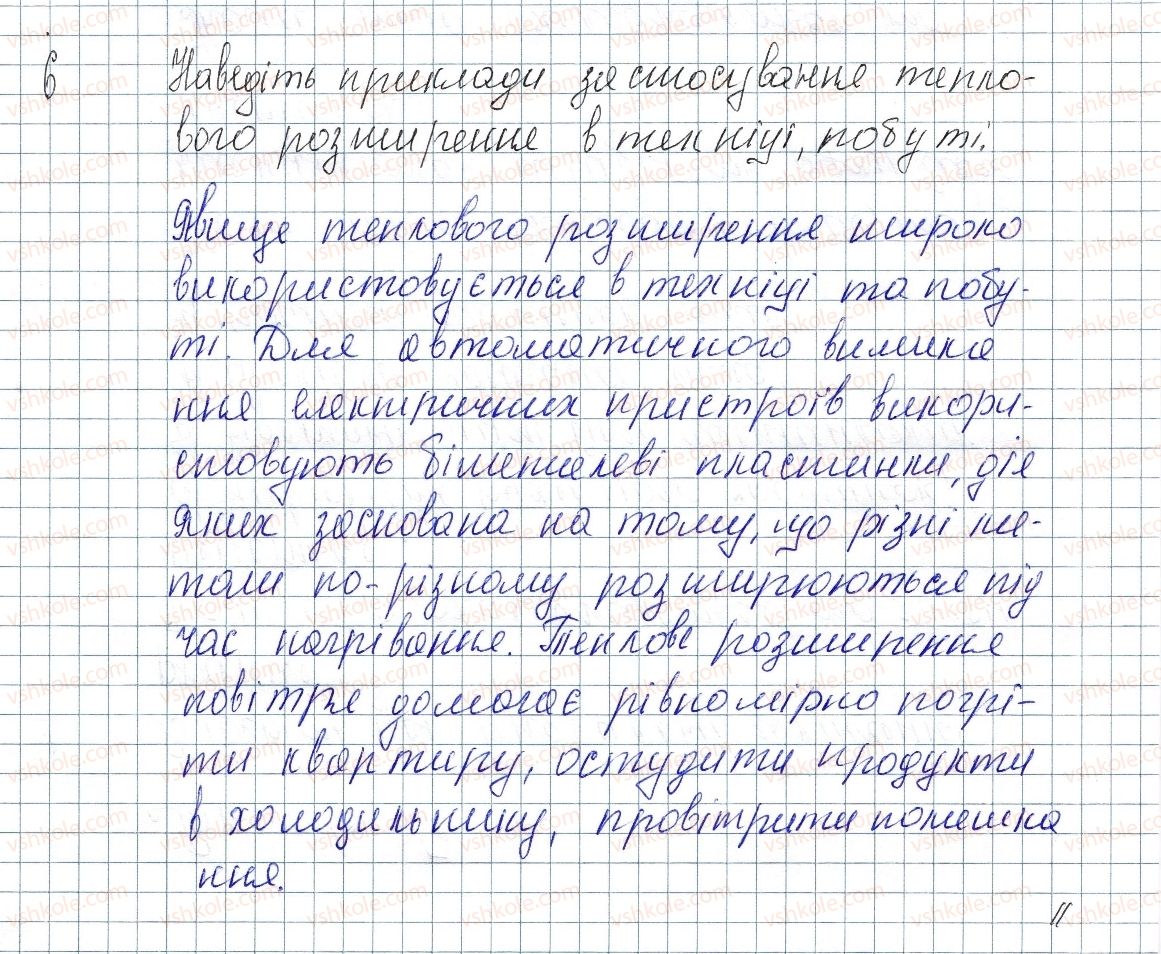 6 Наведіть приклади застосування тепло-
вого розширення в техніці, побуті.
Явище теплового розширення широко
використовується в техніці та побу-
ті. Для автоматичного вимика
ння електричних пристроїв викори-
стовують біметалеві пластинки, дія
яких заснована на тому, що різні ме-
тали по-різному розширюються під
час нагрівання. Теплове розширення
повітря домагає рівномірно нагрі-
ти квартиру, остудити продукти
в холодильнику, провітрити помешка
ння.
11